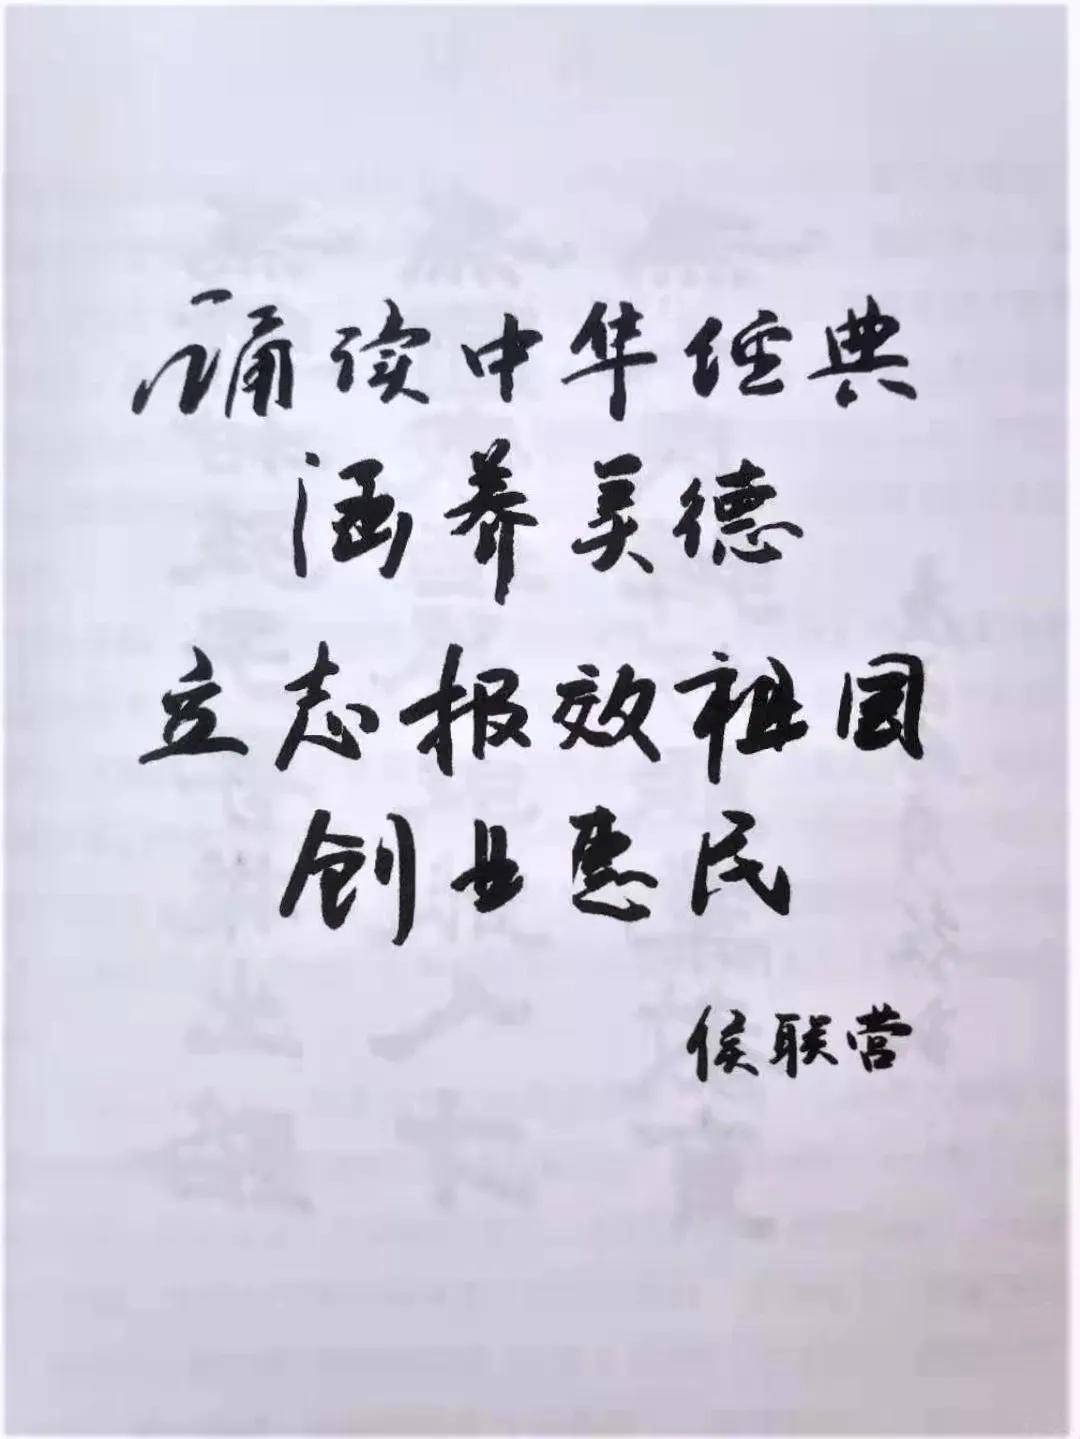 诵读中华经典
涵养美德
立志报效祖国
创业惠民
侯联营